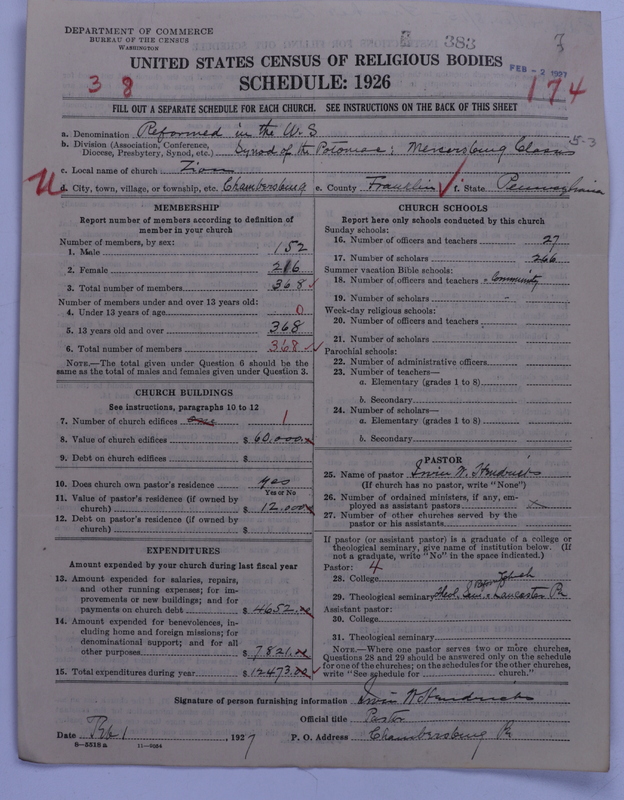 383
DEPARTMENT OF COMMERCE
BUREAU OF THE CENSUS
WASHINGTON
UNITED STATES CENSUS OF RELIGIOUS BODIES
FEB - 2 1927
3 8
SCHEDULE: 1926
174
FILL OUT A SEPARATE SCHEDULE FOR EACH CHURCH. SEE INSTRUCTIONS ON THE BACK OF THIS SHEET
a. Denomination Reformed in the U.S
5-3
b. Division (Association, Conference, Diocese, Presbytery, Synod, etc.) Synod of the Potomac; Mercersburg Classis
c. Local name of church Zion
d. City, town, village, or township, etc. Chambersburg e. County Franklin f. State Pennsylvania
MEMBERSHIP
Report number of members according to definition of
member in your church
Number of members, by sex:
1. Male 152
2. Female 216
3. Total number of members 368
Number of members under and over 13 years old:
4. Under 13 years of age 0
5. 13 years old and over 368
6. Total number of members 368
NOTE.—The total given under Question 6 should be the
same as the total of males and females given under Question 3.
CHURCH BUILDINGS
See instructions, paragraphs 10 to 12
7. Number of church edifices 1
8. Value of church edifices $ 60,000
9. Debt on church edifices $
10. Does church own pastor's residence yes
Yes or No
11. Value of pastor's residence (if owned by
church) $ 12,000
12. Debt on pastor's residence (if owned by
church) $
EXPENDITURES
Amount expended by your church during last fiscal year
13. Amount expended for salaries, repairs,
and other running expenses; for im-
provements or new buildings; and for
payments on church debt $ 4652.00
14. Amount expended for benevolences, in-
cluding home and foreign missions; for
denominational support; and for all
other purposes $ 7821.00
15. Total expenditures during year $ 12473.00
CHURCH SCHOOLS
Report here only schools conducted by this church
Sunday schools:
16. Number of officers and teachers 27
17. Number of scholars 266
Summer vacation Bible schools:
18. Number of officers and teachers Community
19. Number of scholars "
Week-day religious schools:
20. Number of officers and teachers
21. Number of scholars
Parochial schools:
22. Number of administrative officers
23. Number of teachers—
a. Elementary (grades 1 to 8)
b. Secondary
24. Number of scholars—
a. Elementary (grades 1 to 8)
b. Secondary
PASTOR
25. Name of pastor Irwin W. Hendricks
(If church has no pastor, write "None")
26. Number of ordained ministers, if any, em-
ployed as assistant pastors x
27. Number of other churches served by the
pastor or his assistants
If pastor (or assistant pastor) is a graduate of a college or
theological seminary, give name of institution below. (If
not a graduate, write "No" in the space indicated.)
Pastor: 4
28. College
29. Theological seminary Theol. Sem. Lancaster Pa
Assistant pastor:
30. College
31. Theological seminary
NOTE.—Where one pastor serves two or more churches,
Questions 28 and 29 should be answered only on the schedule
for one of the churches; on the schedules for the other churches,
write "See schedule for church."
Signature of person furnishing information Irwin W Hendricks
Official title Pastor
Date Feb 1, 1927 P. O. Address Chambersburg Pa
8-5518 a 11-9064